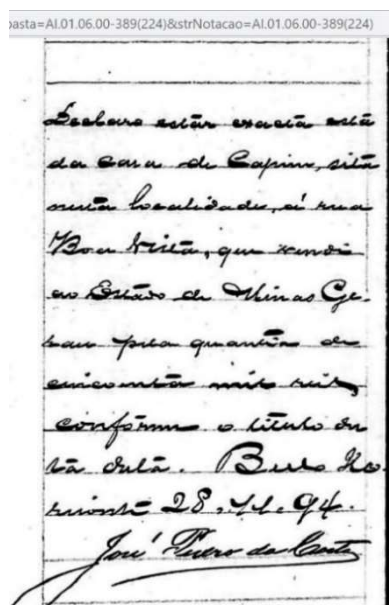 pasta=AI.01.06.00-389(224)&strNotacao=AI.01.06.00-389(224)
Declaro estár exacta está
da casa de Capim, sitá
nesta localidade, á rua
Boa Vista, que vendi
ao Estado de Minas Ge-
raes pela quantia de
cincoenta mil reis,
conforme o titulo des
tá data. Bello Ho-
rizonte 28. 11. 94.
José Pedro da Costa